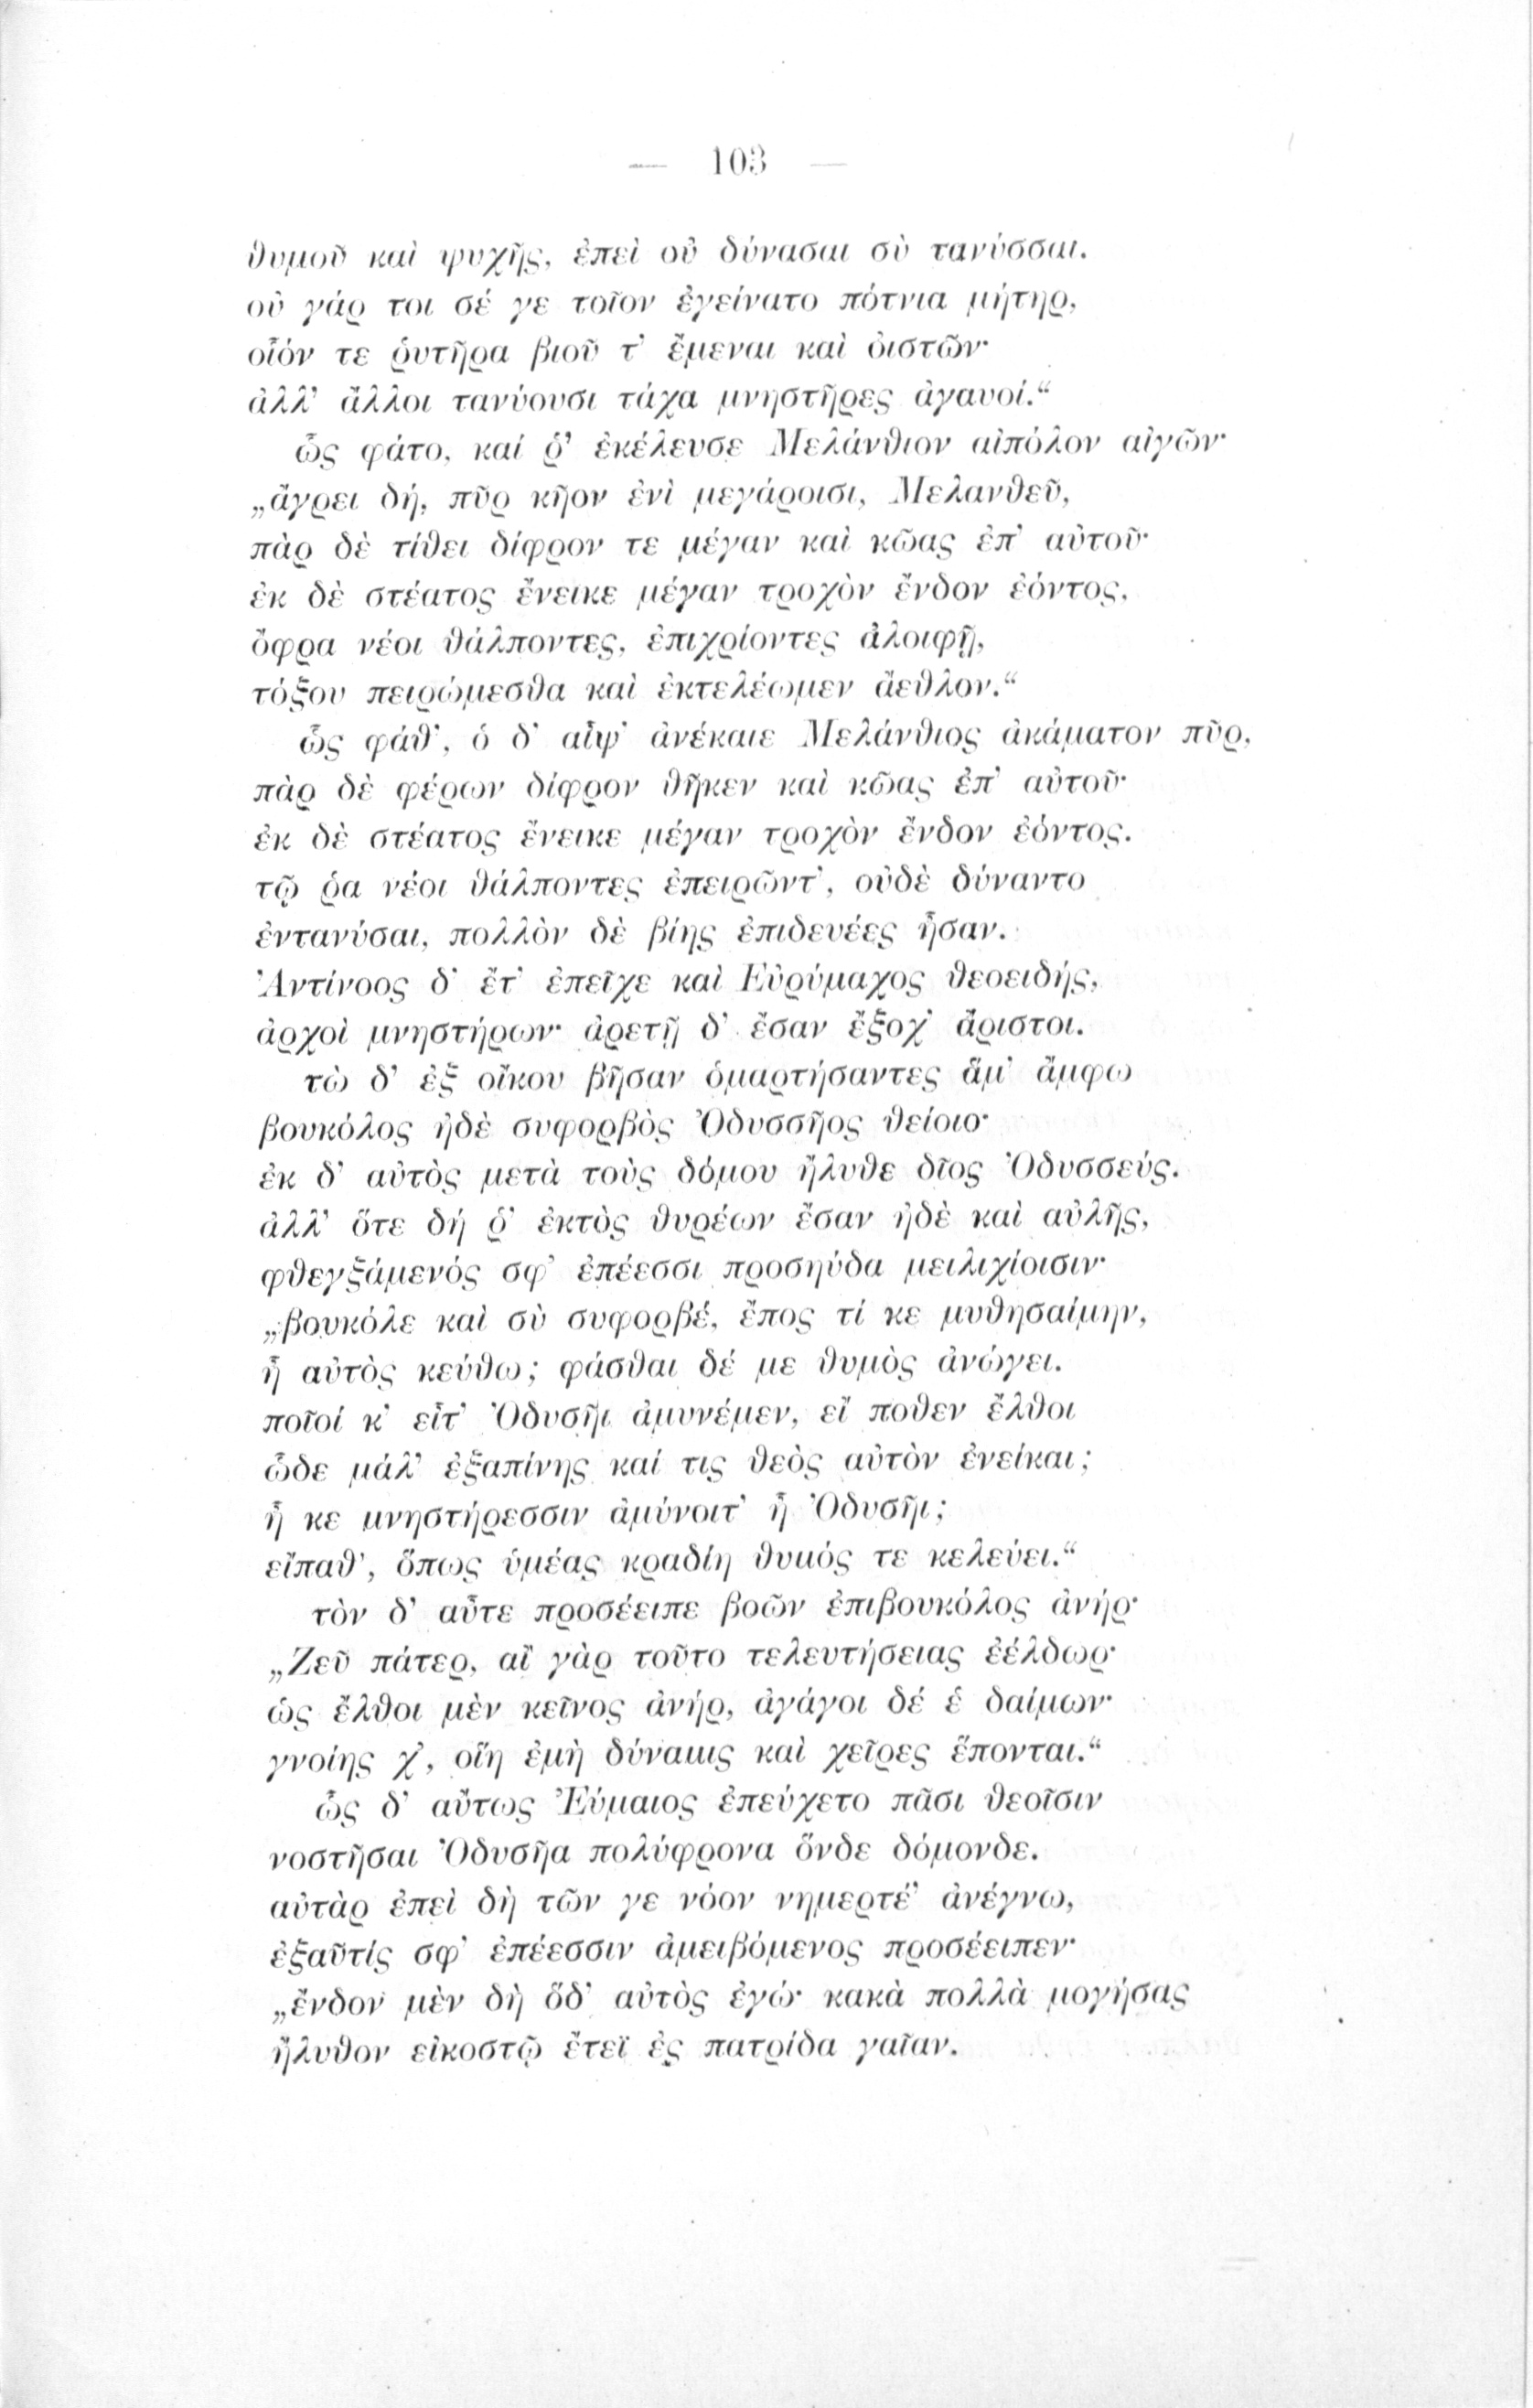 — 103 —
θυμοῦ καὶ ψυχῆς, ἐπεὶ οὐ δύνασαι σὺ τανύσσαι.
οὐ γάρ τοι σέ γε τοῖον ἐγείνατο πότνια μήτηρ,
οἷόν τε ῥυτῆρα βιοῦ τ' ἔμεναι καὶ ὀιστῶν·
ἀλλ' ἄλλοι τανύουσι τάχα μνηστῆρες ἀγαυοί.“
ὣς φάτο, καί ῥ' ἐκέλευσε Μελάνθιον αἰπόλον αἰγῶν·
„ἄγρει δή, πῦρ κῆον ἐνὶ μεγάροισι, Μελανθεῦ,
πὰρ δὲ τίθει δίφρον τε μέγαν καὶ κῶας ἐπ' αὐτοῦ·
ἐκ δὲ στέατος ἔνεικε μέγαν τροχὸν ἔνδον ἐόντος,
ὄφρα νέοι θάλποντες, ἐπιχρίοντες ἀλοιφῇ,
τόξου πειρώμεσθα καὶ ἐκτελέωμεν ἄεθλον.“
ὣς φάθ', ὁ δ' αἶψ' ἀνέκαιε Μελάνθιος ἀκάματον πῦρ,
πὰρ δὲ φέρων δίφρον θῆκεν καὶ κῶας ἐπ' αὐτοῦ·
ἐκ δὲ στέατος ἔνεικε μέγαν τροχὸν ἔνδον ἐόντος.
τῷ ῥα νέοι θάλποντες ἐπειρῶντ', οὐδὲ δύναντο
ἐντανύσαι, πολλὸν δὲ βίης ἐπιδευέες ἦσαν.
Ἀντίνοος δ' ἔτ' ἐπεῖχε καὶ Εὐρύμαχος θεοειδής,
ἀρχοὶ μνηστήρων· ἀρετῇ δ' ἔσαν ἔξοχ' ἄριστοι.
τὼ δ' ἐξ οἴκου βῆσαν ὁμαρτήσαντες ἅμ' ἄμφω
βουκόλος ἠδὲ συφορβὸς Ὀδυσσῆος θείοιο·
ἐκ δ' αὐτὸς μετὰ τοὺς δόμου ἤλυθε δῖος Ὀδυσσεύς.
ἀλλ' ὅτε δή ῥ' ἐκτὸς θυρέων ἔσαν ἠδὲ καὶ αὐλῆς,
φθεγξάμενός σφ' ἐπέεσσι προσηύδα μειλιχίοισιν·
„βουκόλε καὶ σὺ συφορβέ, ἔπος τί κε μυθησαίμην,
ἦ αὐτὸς κεύθω; φάσθαι δέ με θυμὸς ἀνώγει.
ποῖοί κ' εἶτ' Ὀδυσῆι ἀμυνέμεν, εἴ ποθεν ἔλθοι
ὧδε μάλ' ἐξαπίνης καί τις θεὸς αὐτὸν ἐνείκαι;
ἤ κε μνηστήρεσσιν ἀμύνοιτ' ἦ Ὀδυσῆι;
εἴπαθ', ὅπως ὑμέας κραδίη θυμός τε κελεύει.“
τὸν δ' αὖτε προσέειπε βοῶν ἐπιβουκόλος ἀνήρ·
„Ζεῦ πάτερ, αἲ γὰρ τοῦτο τελευτήσειας ἐέλδωρ·
ὡς ἔλθοι μὲν κεῖνος ἀνήρ, ἀγάγοι δέ ἑ δαίμων·
γνοίης χ', οἵη ἐμὴ δύναμις καὶ χεῖρες ἕπονται.“
ὣς δ' αὔτως Ἐύμαιος ἐπεύχετο πᾶσι θεοῖσιν
νοστῆσαι Ὀδυσῆα πολύφρονα ὅνδε δόμονδε.
αὐτὰρ ἐπεὶ δὴ τῶν γε νόον νημερτέ' ἀνέγνω,
ἐξαῦτίς σφ' ἐπέεσσιν ἀμειβόμενος προσέειπεν·
„ἔνδον μὲν δὴ ὅδ' αὐτὸς ἐγώ· κακὰ πολλὰ μογήσας
ἤλυθον εἰκοστῷ ἔτεϊ ἐς πατρίδα γαῖαν.